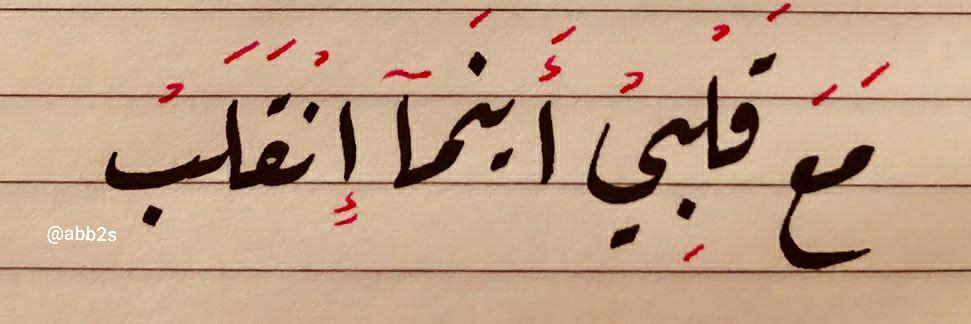 مَعَ قَلْبِيْ أَينَمآ إِنْقَلَبْ
@abb2s